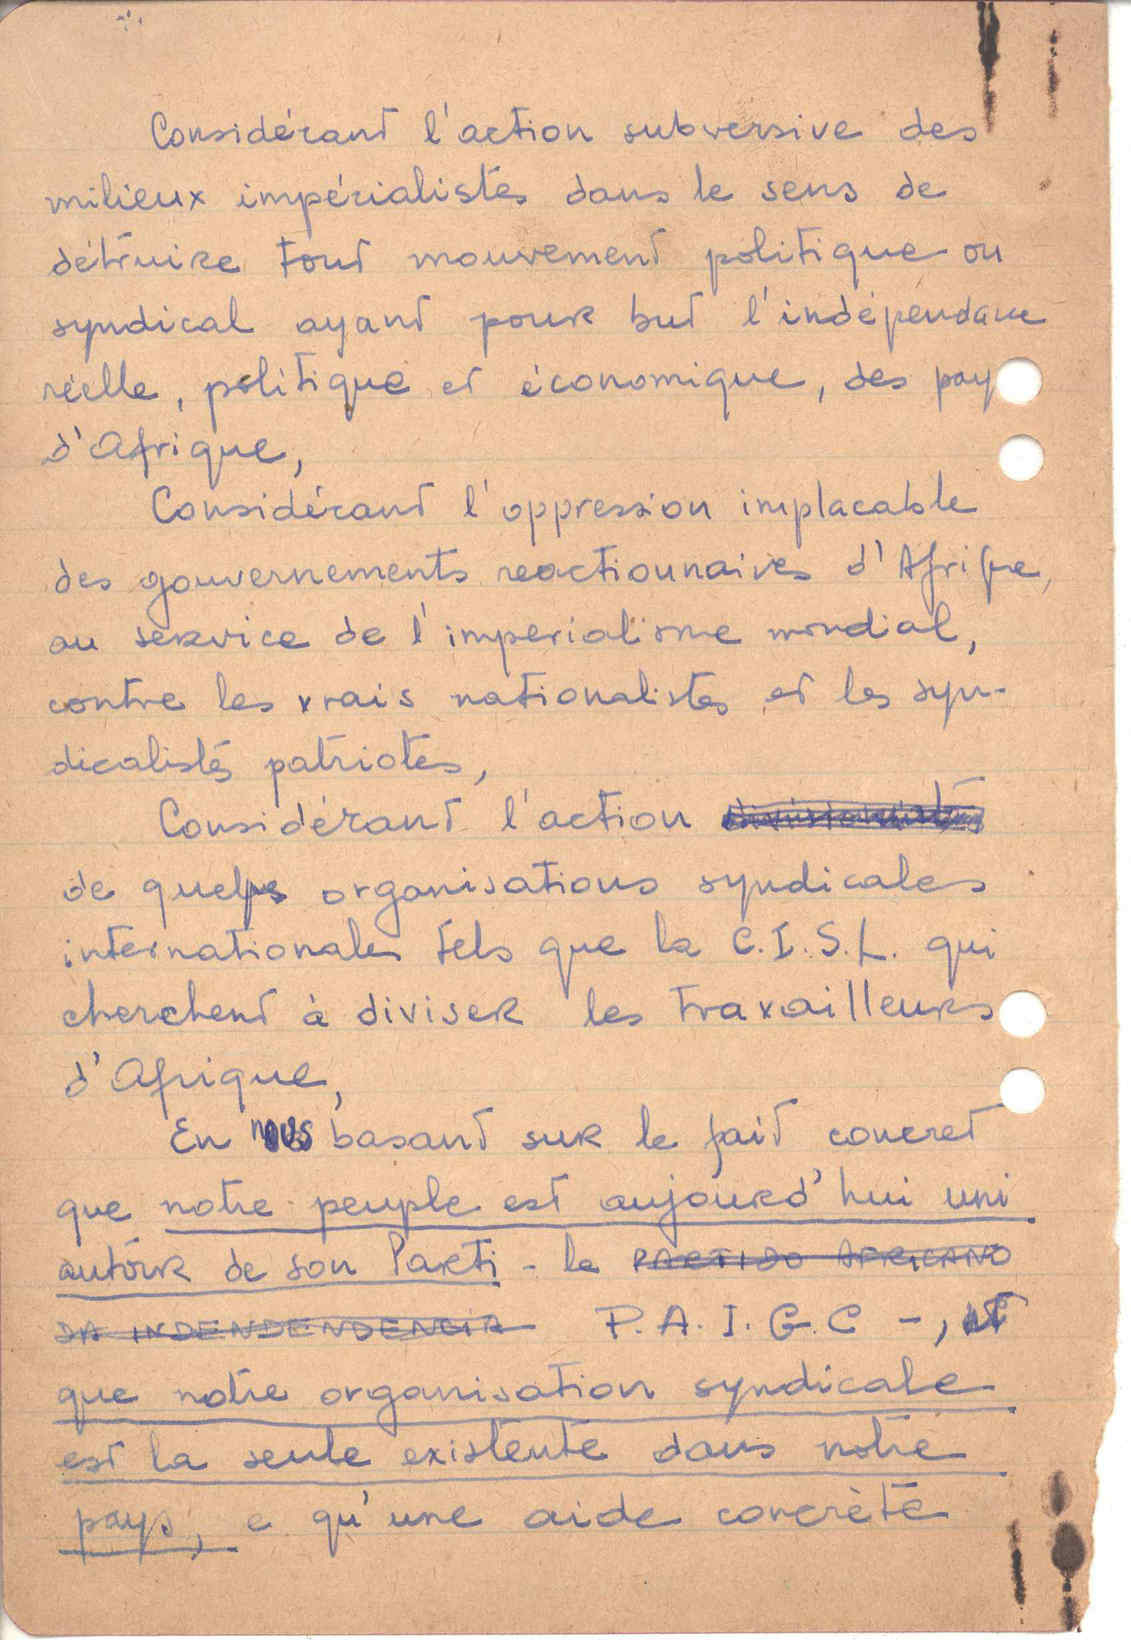 Considérant l'action subversive des
milieux impérialistes dans le sens de
détruire tout mouvement politique ou
syndical ayant pour but l'indépendance
réelle, politique et économique, des pay
d'Afrique,
Considérant l'oppression implacable
des gouvernements reactionnaires d'Afrique,
au service de l'imperialisme mondial,
contre les vrais nationalistes et les syn-
dicalistes patriotes,
Considérant l'action
de quelqs organisations syndicales
internationales tels que la C.I.S.L. qui
cherchent à diviser les travailleurs
d'Afrique,
En nous basant sur le fait concret
que notre peuple est aujourd'hui uni
autour de son Parti - le PARTIDO AFRICANO
DA INDENDENDENCIA P.A.I.G.C -, et
que notre organisation syndicale
est la seule existente dans notre
pays, e qu'une aide concrète